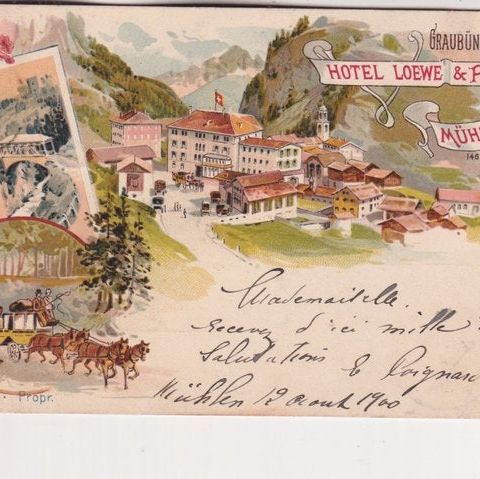 GRAUBÜN
HOTEL LOEWE & P
MÜH
146
Mademoiselle.
recevez d'ici mille
Salutations
Mühlen 12 août 1900
Propr.